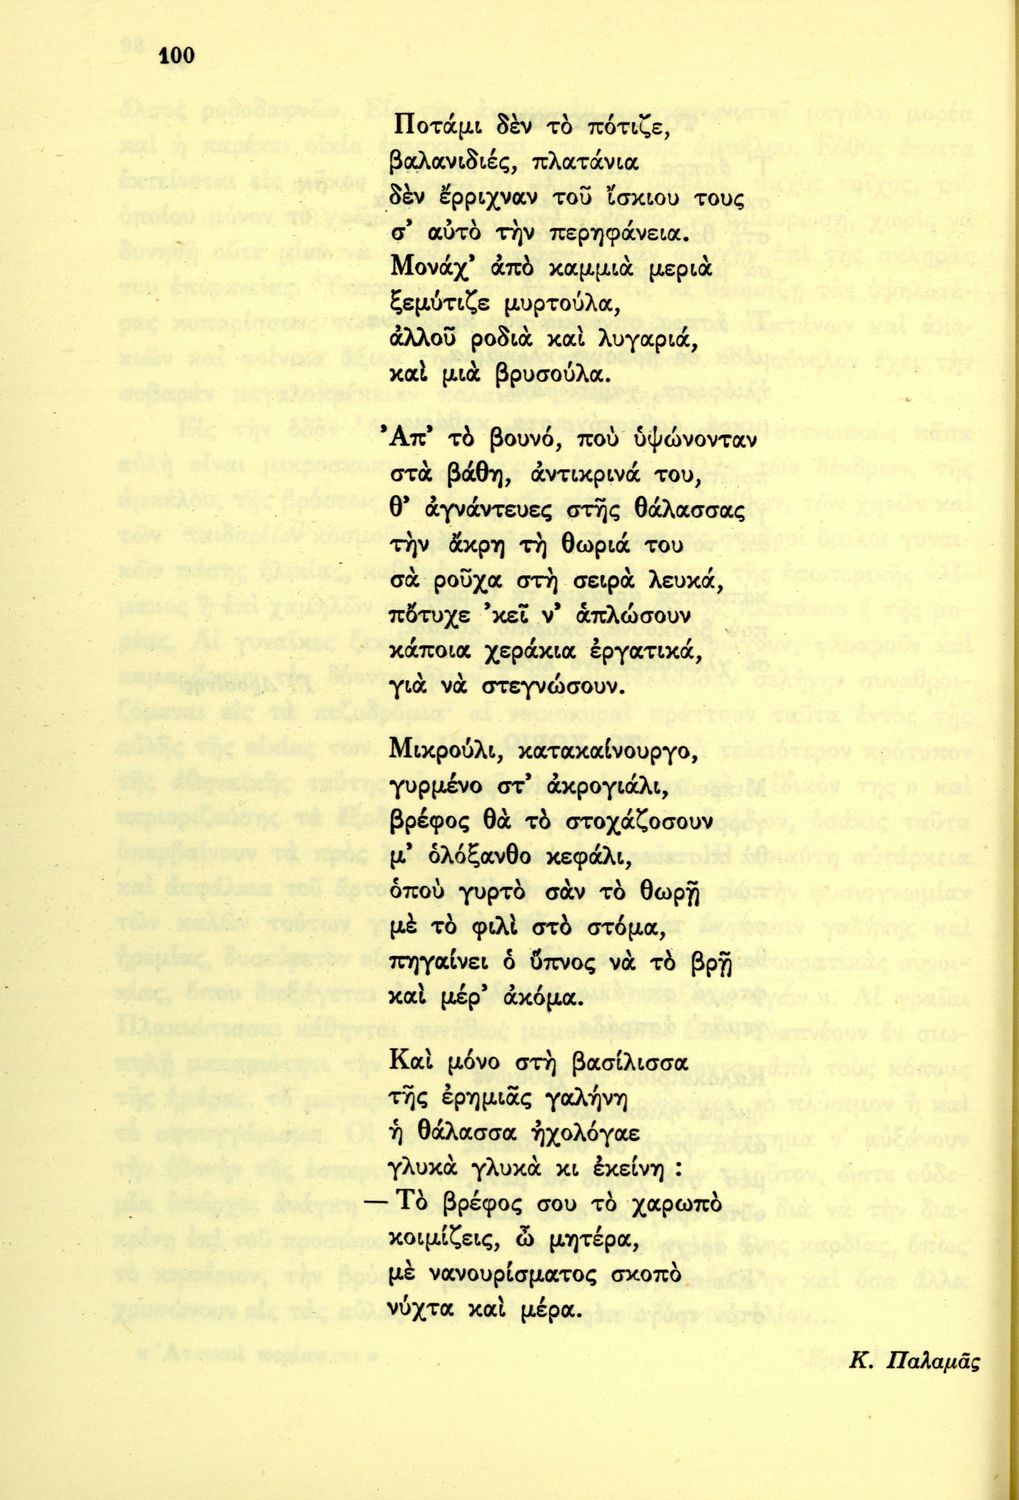 100
Ποτάμι δὲν τὸ πότιζε,
βαλανιδιές, πλατάνια
δὲν ἔρριχναν τοῦ ἴσκιου τους
σ’ αὐτὸ τὴν περηφάνεια.
Μονάχ’ ἀπὸ καμμιὰ μεριὰ
ξεμύτιζε μυρτούλα,
ἀλλοῦ ροδιὰ καὶ λυγαριά,
καὶ μιὰ βρυσούλα.
Ἀπ’ τὸ βουνό, ποὺ ὑψώνονταν
στὰ βάθη, ἀντικρινά του,
θ’ ἀγνάντευες στῆς θάλασσας
τὴν ἄκρη τὴ θωριά του
σὰ ροῦχα στὴ σειρὰ λευκά,
πὄτυχε ’κεῖ ν’ ἁπλώσουν
κάποια χεράκια ἐργατικά,
γιὰ νὰ στεγνώσουν.
Μικρούλι, κατακαίνουργο,
γυρμένο στ’ ἀκρογιάλι,
βρέφος θὰ τὸ στοχάζοσουν
μ’ ὁλόξανθο κεφάλι,
ὁποὺ γυρτὸ σὰν τὸ θωρῇ
μὲ τὸ φιλὶ στὸ στόμα,
πηγαίνει ὁ ὕπνος νὰ τὸ βρῇ
καὶ μέρ’ ἀκόμα.
Καὶ μόνο στὴ βασίλισσα
τῆς ἐρημιᾶς γαλήνη
ἡ θάλασσα ἠχολόγαε
γλυκὰ γλυκὰ κι ἐκείνη :
— Τὸ βρέφος σου τὸ χαρωπὸ
κοιμίζεις, ὦ μητέρα,
μὲ νανουρίσματος σκοπὸ
νύχτα καὶ μέρα.
Κ. Παλαμᾶς